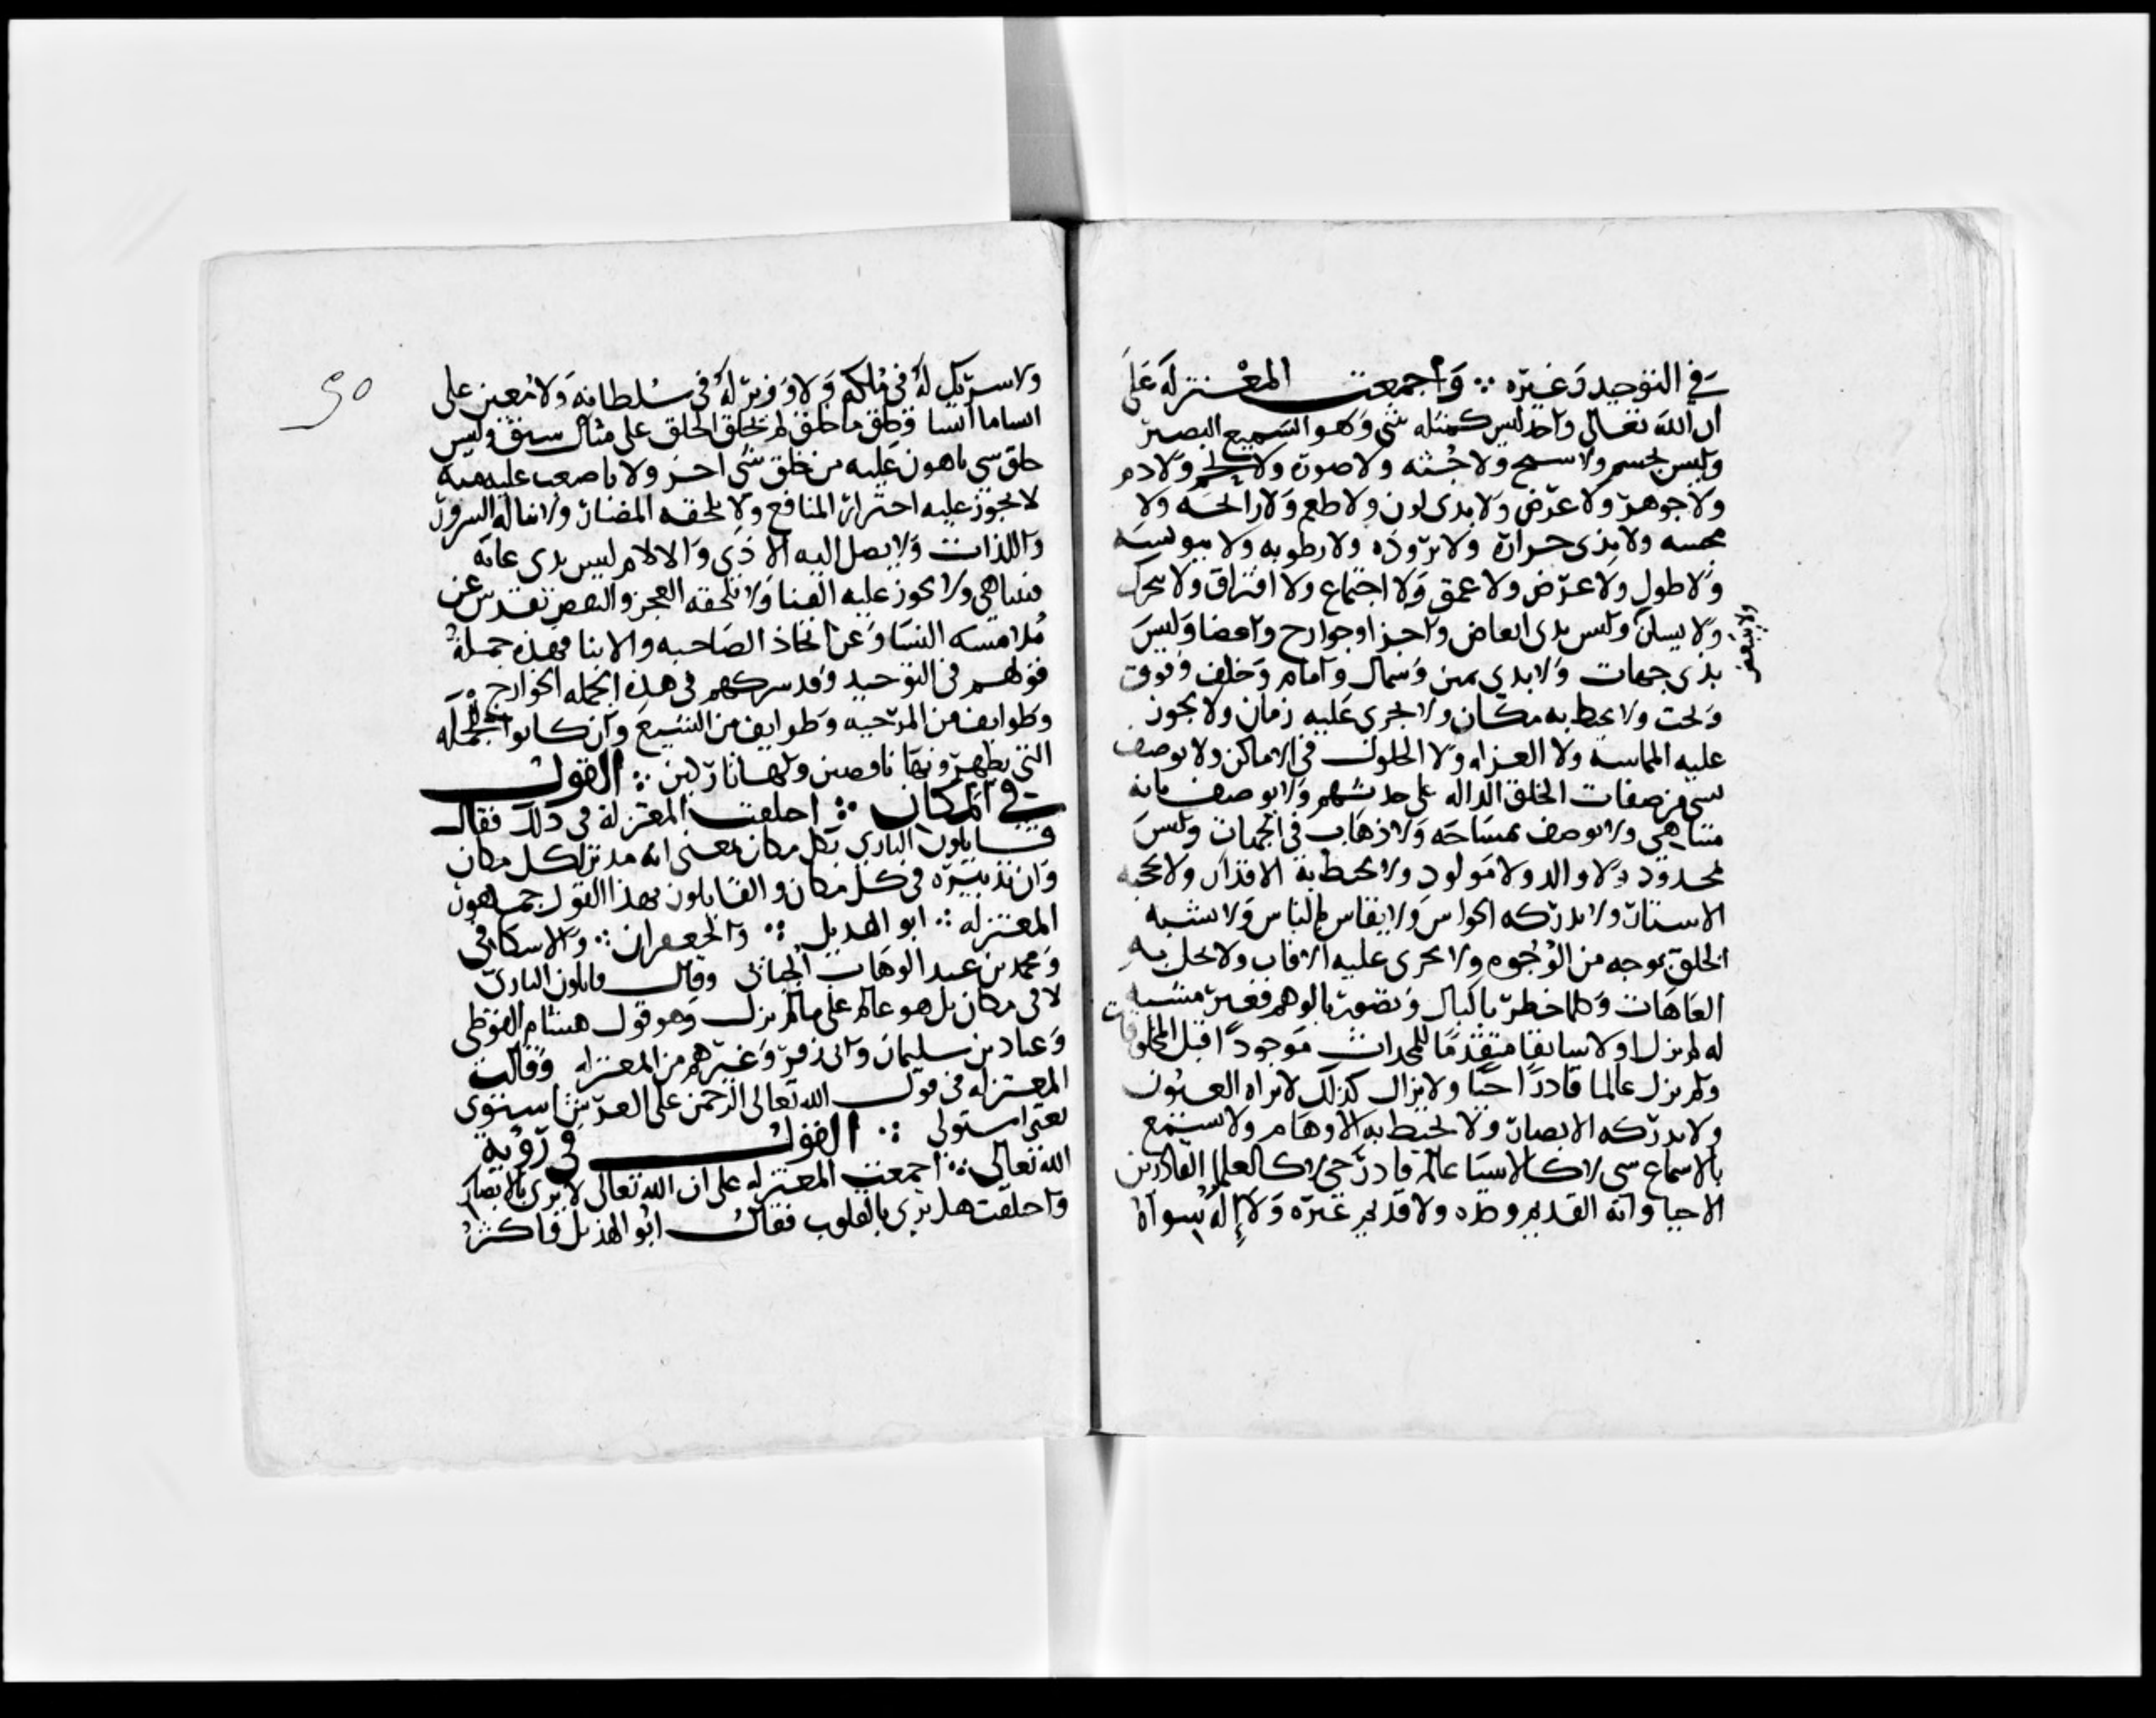 في التوحيد وغيره ∴ واجمعت المعتزلة على
ان الله تعالى واحد ليس كمثله شي وهو السميع البصير
وليس بجسم ولا سبح ولا جثه ولا صورة ولا لحم ولا دم
ولا جوهر ولا عرض ولا بدى لون ولا طعم ولا رائحه ولا
محسه ولا بذى حرارة ولا بروده ولا رطوبه ولا يبوسه
ولا طول ولا عرض ولا عمق ولا اجتماع ولا افتراق ولا يتحرك
ولا يسكن وليس بدى ابعاض واجزا وجوارح واعضا وليس
ولا يتبعض
بذى جهات ولا بدى يمين وشمال وامام وخلف وفوق
وتحت ولا يحيط به مكان ولا يجرى عليه زمان ولا يجوز
عليه المماسه ولا العزله ولا الحلول في الاماكن ولا يوصف
بشى من صفات الخلق الداله على حدثهم ولا يوصف بانه
متناهي ولا يوصف بمساحه ولا ذهاب في الجهات وليس
بمحدود ولا والد ولا مولود ولا يحيط به الاقدار ولا تحجبه
الاستار ولا تدركه الحواس ولا يقاس بالناس ولا يشبه
الخلق بوجه من الوجوه ولا تجرى عليه الافات ولا تحل به
العاهات وكلما خطر بالبال وتصور بالوهم فغير مشبه
له لم يزل اولا سابقا متقدما للمحدثات موجودا قبل المخلوقات
ولم يزل عالما قادرا حيا ولا يزال كذلك لا تراه العيون
ولا تدركه الابصار ولا تحيط به الاوهام ولا يسمع
بالاسماع شى لا كالاشيا عالم قادر حي لا كالعلما القادرين
الاحيا وانه القديم وحده ولا قديم غيره ولا إله سواه
٥٠
ولا شريك له في ملكه ولا وزير له في سلطانه ولا معين على
انشا ما انشا وخلق ما خلق لم يخلق الخلق على مثال سبق وليس
خلق شى باهون عليه من خلق شى اخر ولا باصعب عليه منه
لا يجوز عليه اجترار المنافع ولا تلحقه المضار ولا يناله السرور
واللذات ولا يصل اليه الاذى والالام ليس بدى غايه
فيتناهى ولا يجوز عليه الفنا ولا يلحقه العجز والنقص تقدس عن
ملامسه النسا وعن اتخاذ الصاحبه والابنا فهذه جملة
قولهم في التوحيد وقد شركهم في هذه الجمله الخوارج
وطوايف من المرجيه وطوايف من الشيع وان كانوا للجملة
التي يظهرونها ناقضين ولها تاركين ∴ القول
في المكان ∴ اختلفت المعتزلة في ذلك فقال
قايلون البارى بكل مكان بمعنى انه مدبر لكل مكان
وان تدبيره في كل مكان والقايلون بهذا القول جمهور
المعتزله ∴ ابو الهديل ∴ والجعفران ∴ والاسكافى
ومحمد بن عبد الوهاب الجبائى وقال قايلون البارى
لا فى مكان بل هو على ما لم يزل وهو قول هشام الفوطى
وعباد بن سليمان وابى زفر وغيرهم من المعتزله وقالت
المعتزله في قول الله تعالى الرحمن على العرش استوى
يعنى استولى ∴ القول في رؤية
الله تعالى ∴ اجمعت المعتزله على ان الله تعالى لا يرى بالابصار
واختلفت هل يرى بالقلوب فقال ابو الهذيل واكثر